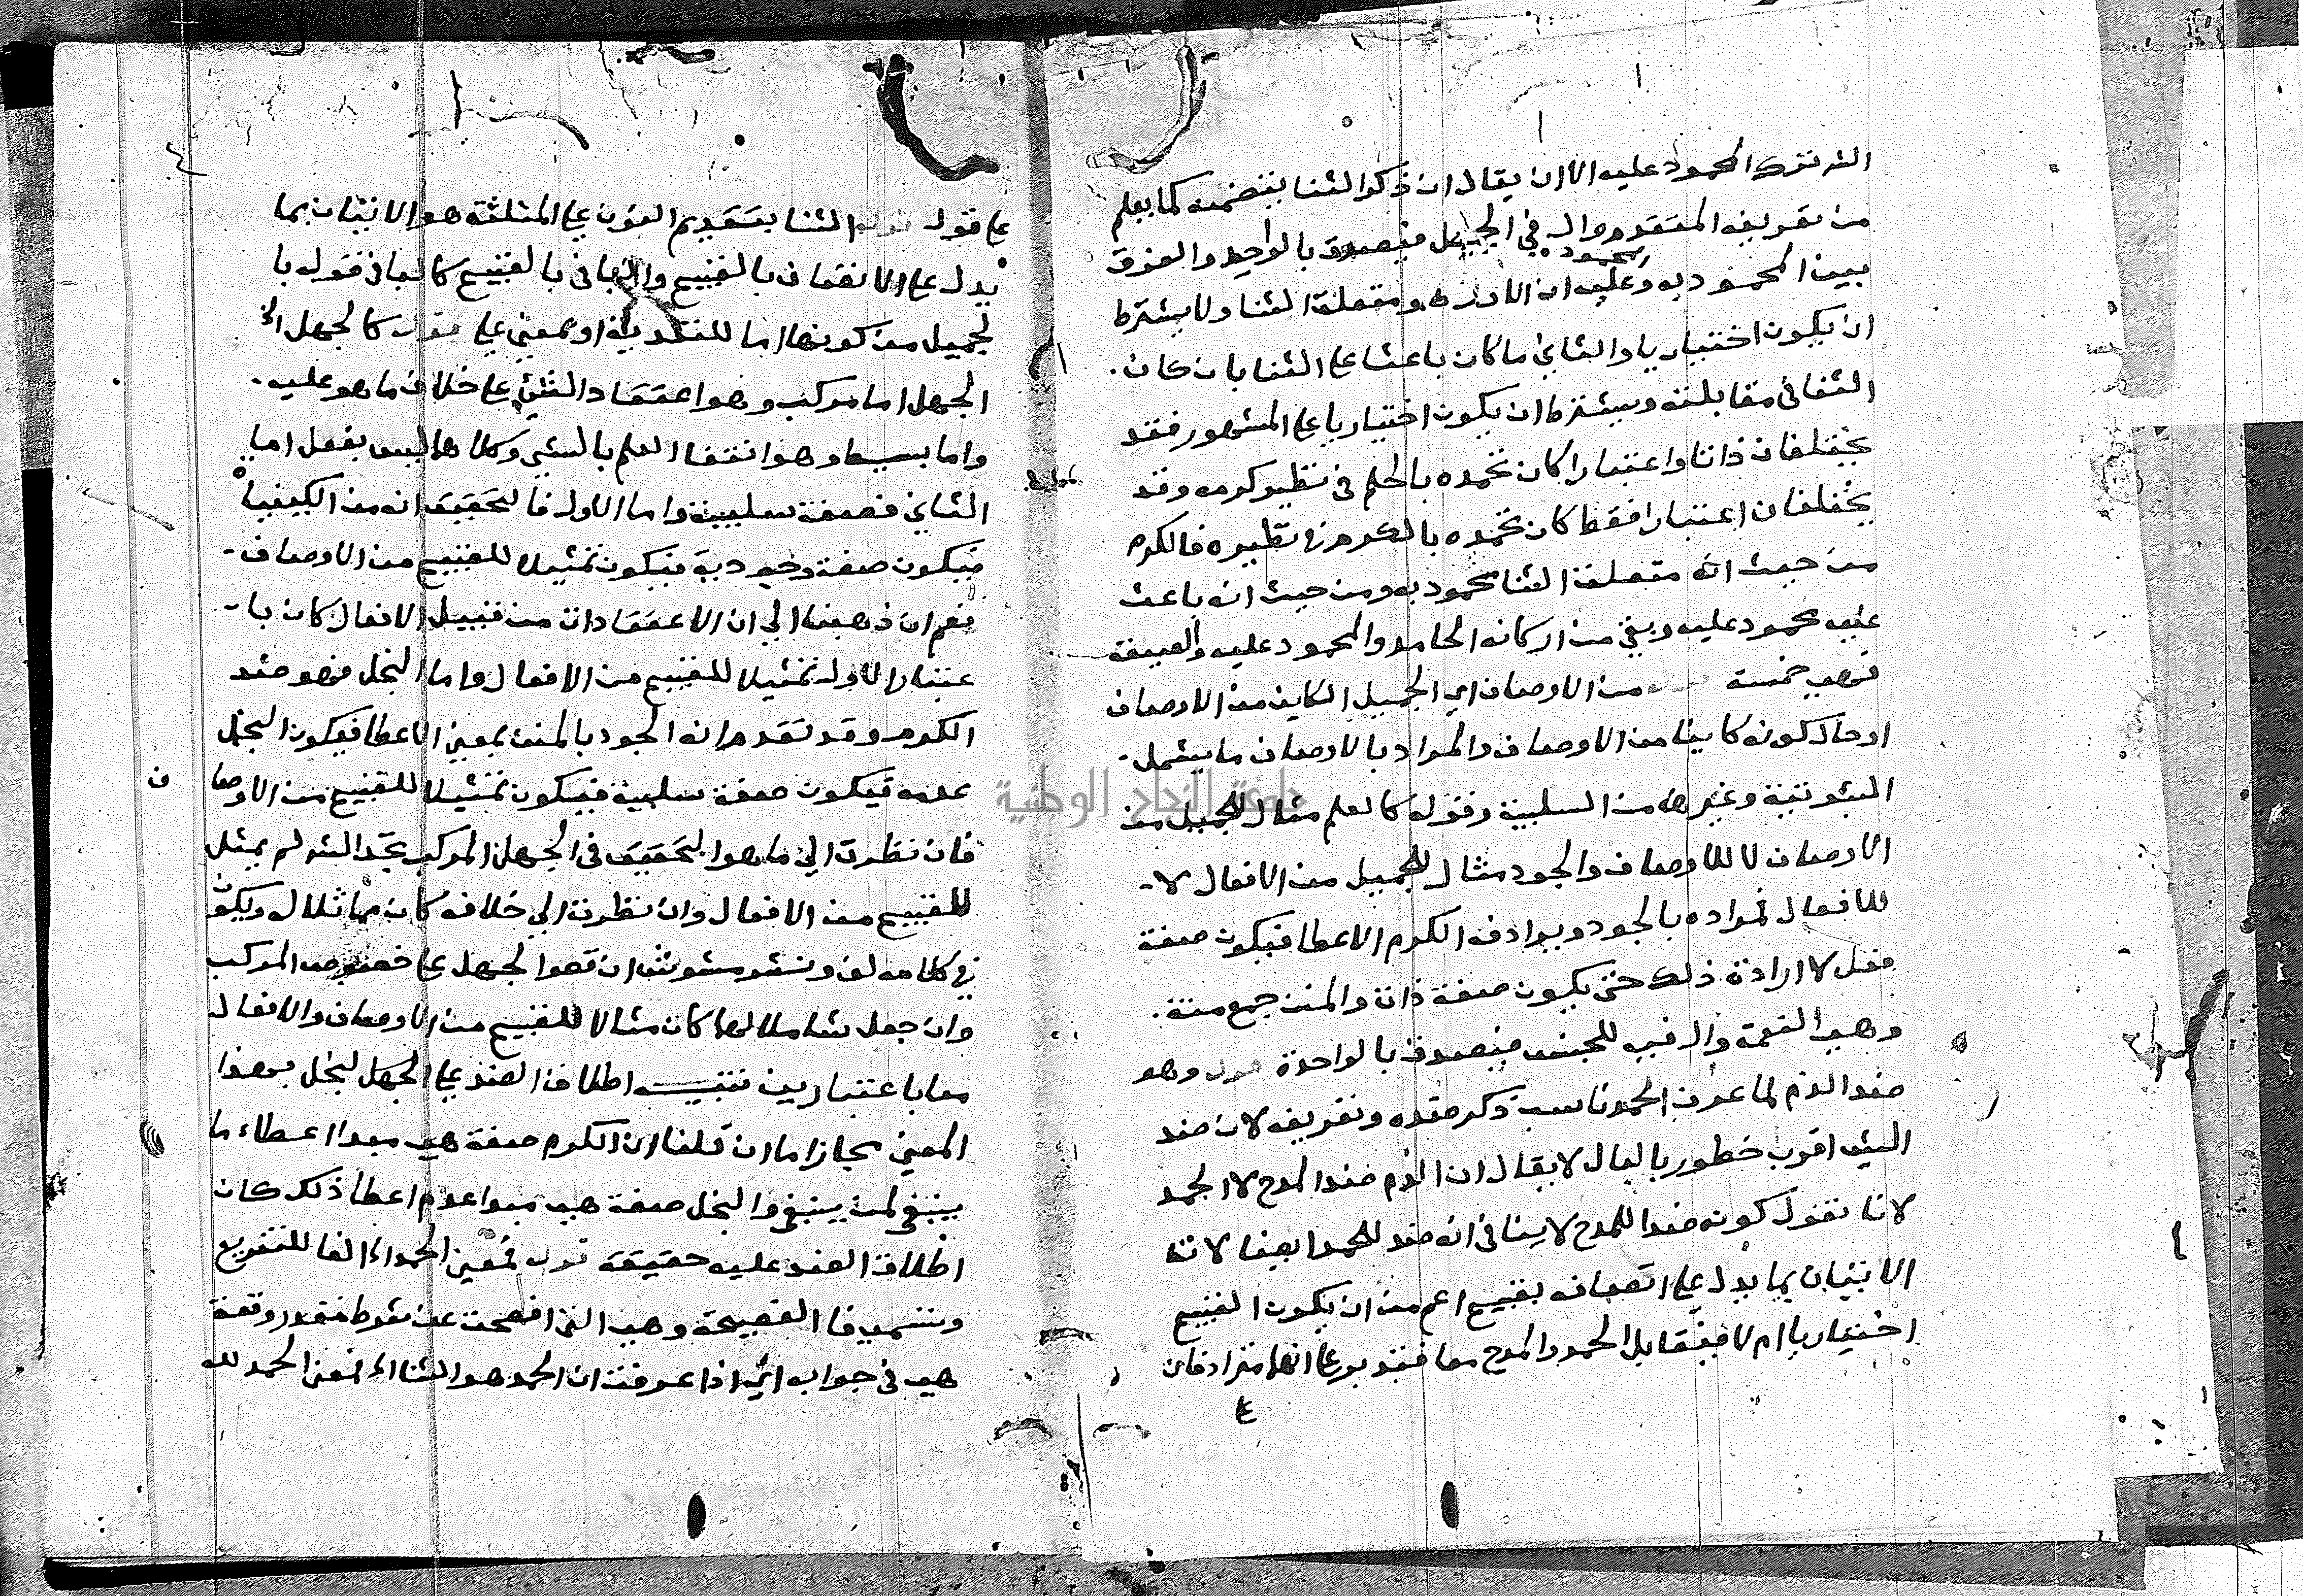 الشر نترك المحمود عليه الا ان يقال ان ذكر الثنا يتضمنه كما يعلم
من تعريفه المتقدم وال في الجميل فيصدق بالواحد والفرق
بين المحمود به ومحمود عليه ان الاول متعلق الثنا ولا يشترط
ان يكون اختياريا والثاني ما كان باعثا على الثنا بان كان
الثنا في مقابلته ويشترط ان يكون اختياريا على المشهور فقد
يختلفان ذاتا واعتبارا كان تحمده بالحلم في نظير كرمه وقد
يختلفان اعتبارا فقط كان تحمده بالكرم في نظيره فالكرم
من حيث انه متعلق الثنا محمود به ومن حيث انه باعث
عليه محمود عليه وبقي من اركانه الحامد والمحمود عليه والصيغة
فهي خمسة من الاوصاف اي الجميل الكاين من الاوصاف
او حال كونه كاينا من الاوصاف والمراد بالاوصاف ما يشمل
الثبوتية وغيرها من السلبية وقوله كالعلم مثال للجميل من
الاوصاف لا للاوصاف والجود مثال للجميل من الافعال لا
للافعال فمراده بالجود ويرادفه الكرم الاعطا فيكون صفة
فعل لا ارادة ذلك حتى يكون صفة ذات والمنن جمع منة
وهي النعمة وال فيه للجنس فيصدق بالواحدة قوله وهو
ضد الذم لما عرف الحمد ناسب ذكر ضده وتعريفه لان ضد
الشي اقرب خطورا بالبال لا يقال ان الذم ضد المدح لا الحمد
لانا نقول كونه ضدا للمدح لا ينافي انه ضد للحمد ايضا لانه
الاتيان بما يدل على اتصافه بقبيح اعم من ان يكون القبيح
اختياريا ام لا فيقابل الحمد والمدح معا فقد برع انهما مترادفان
على قوله الثنا بتقديم النون على المثلثة هو الاتيان بما
يدل على الاتصاف بالقبيح والبا في بالقبيح كالبا في قوله با
لجميل من كونها اما للتعدية او بمعنى على قوله كالجهل الخ
الجهل اما مركب وهو اعتقاد الشي على خلاف ما هو عليه
واما بسيط وهو انتفا العلم بالشي وكلاهما ليس بفعل اما
الثاني فصفة سلبية واما الاول فالتحقيق انه من الكيفيات
فيكون صفة وجودية فيكون تمثيلا للقبيح من الاوصاف
نعم ان ذهبنا الي ان الاعتقادات من قبيل الافعال كان با
عتبار الاول تمثيلا للقبيح من الافعال واما البخل فهو ضد
الكرم وقد تقدم انه الجود بالمنن بمعنى الاعطا فيكون البخل
عدمه فيكون صفة سلبية فيكون تمثيلا للقبيح من الاوصا
ف
فان نظرت الي ما هو التحقيق في الجهل المركب تجد الشر لم يمثل
للقبيح من الافعال وان نظرت الي خلافه كان مماثلا له ويكون
في كلامه لف ونشر مشوش ان قصر الجهل على خصوص المركب
وان جعل شاملا لهما كان مثالا للقبيح من الاوصاف والافعال
معا باعتبارين تنبيه اطلاق الضد على الجهل لبخل بهذا
المعنى مجازا ما ان قلنا ان الكرم صفة هي مبدا اعطاء ما
ينبغي لمن ينبغي والبخل صفة هي مبدا عدم اعطا ذلك كان
اطلاق الضد عليه حقيقة قوله فمعنى الحمد الخ الفا للتفريع
وتسمى فا الفصيحة وهي التي افصحت عن شرط مقدر وقعة
هي في جوابه اي اذا عرفت ان الحمد هو الثنا الخ فمعنى الحمد لله
جامعة النجاح الوطنية